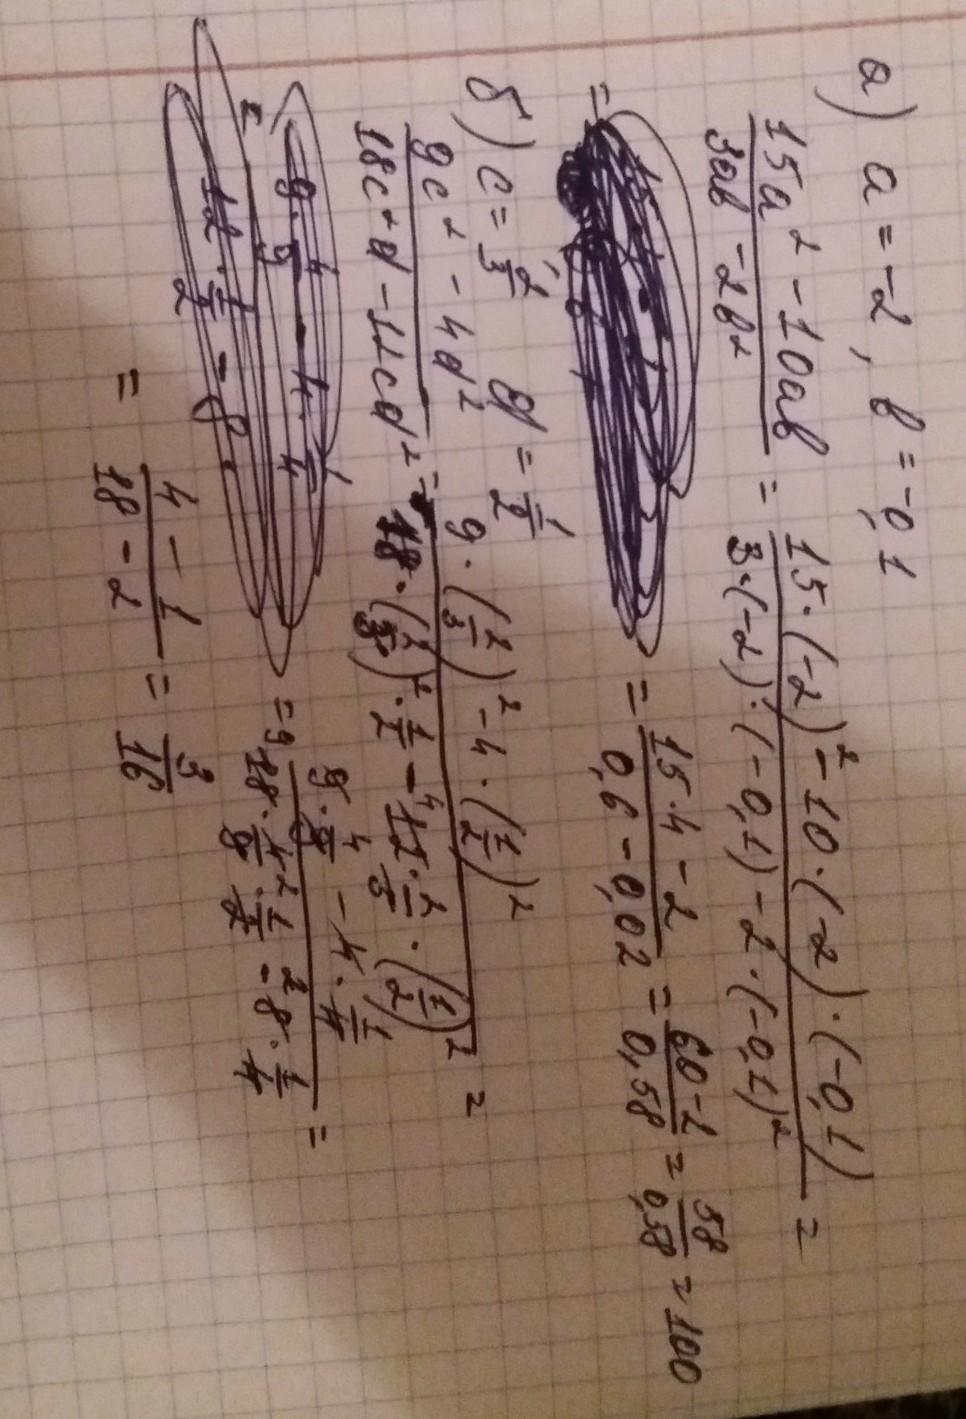 а) a = -2, b = -0,1
15a² - 10ab / 3ab - 2b² = 15·(-2)² - 10·(-2)·(-0,1) / 3·(-2)·(-0,1) - 2·(-0,1)² =
= = 15·4 - 2 / 0,6 - 0,02 = 60 - 2 / 0,58 = 58 / 0,58 = 100
б) c = 2/3, d = 1/2
9c² - 4d² / 18c²d - 12cd² = 9·(2/3)² - 4·(1/2)² / 18·(2/3)²·1/2 - 12·2/3·(1/2)² =
= 9·4/9 - 4·1/4 / 18·4/9·1/2 - 8·1/4 =
= 4 - 1 / 18 - 2 = 3/16